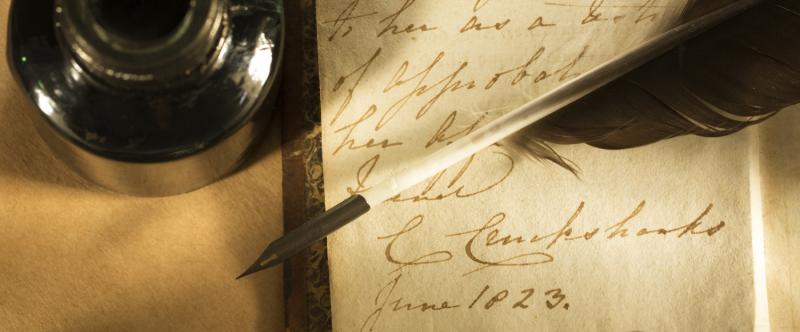 to her as a
of approbat
her
C Cruikshanks
June 1823.